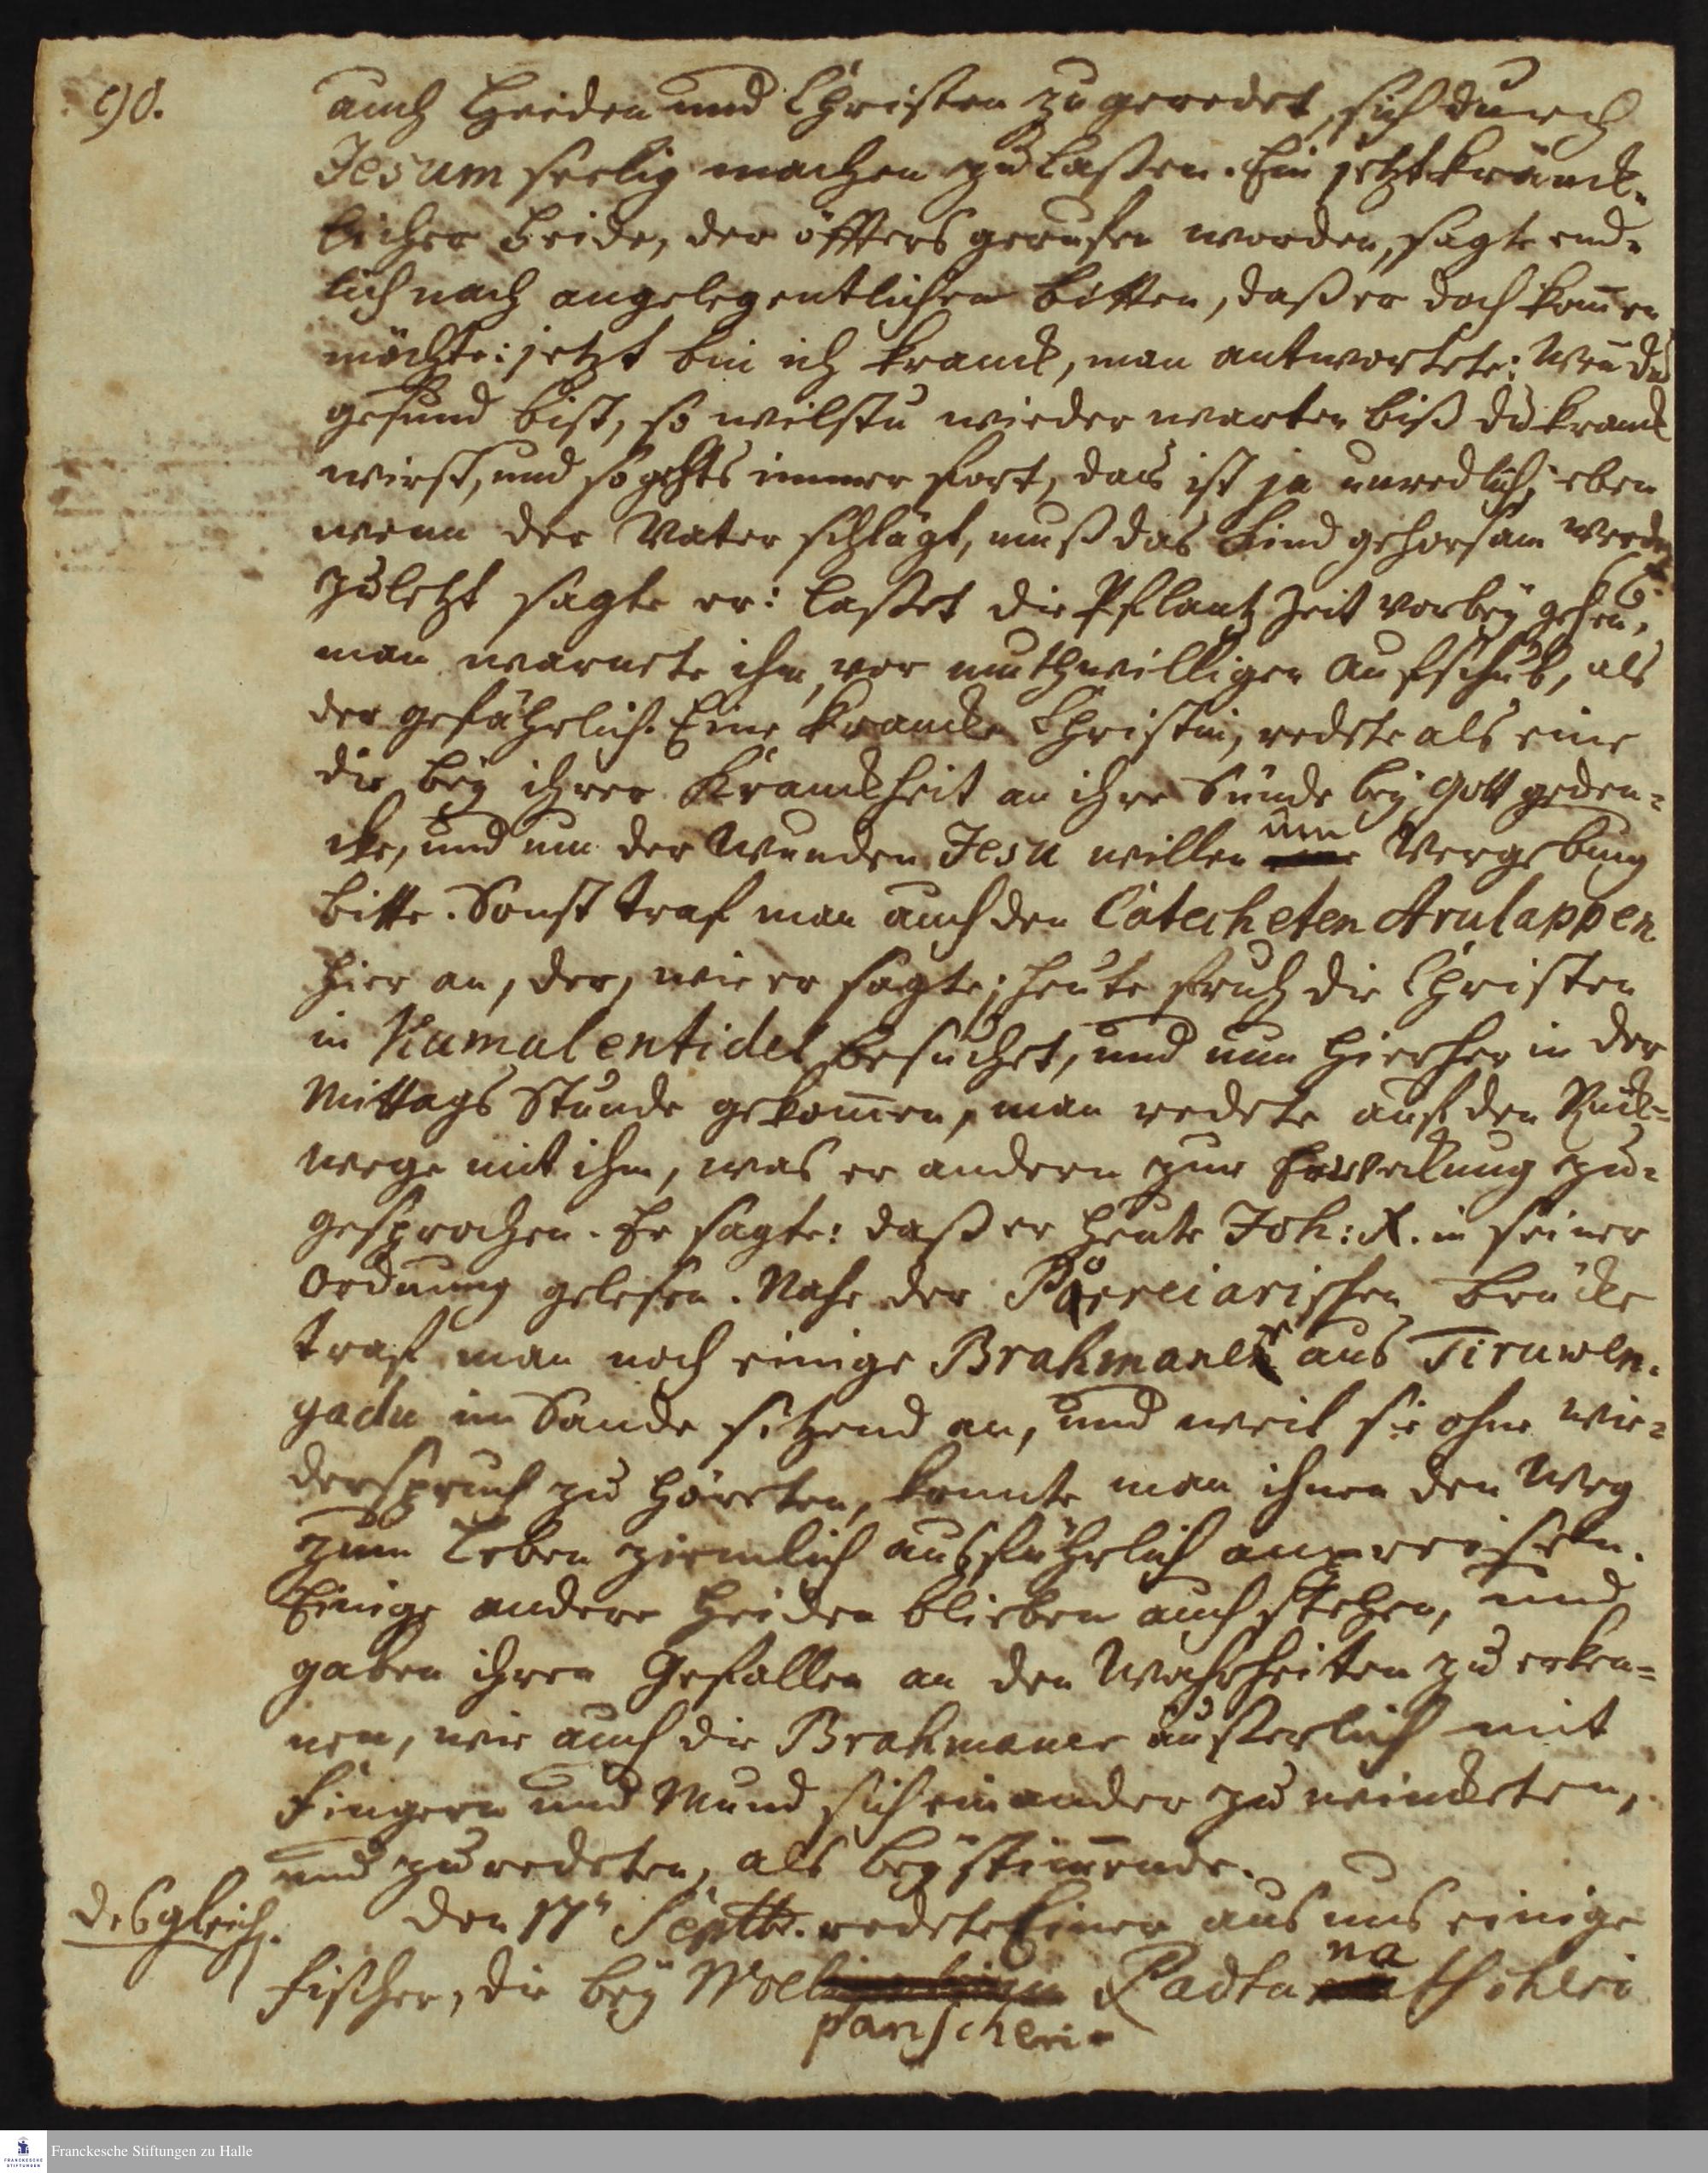 98.
auch Heiden und Christen zugeredet, sich durch
Jesum seelig machen zu laßen. Ein jetzt kränck-
licher Heide, der öffters gerufen worden, sagte end-
lich nach angelegentlichem bitten, daß er doch kom̄en
möchte: jetzt bin ich kranck, man antwortete: Wen̄ du
gesund bist, so wilstu wieder warten biß du kranck
wirst, und so gehts immer fort, das ist ja unredlich, eben
wenn der Vater schlägt, muß das Kind gehorsam werden
zuletzt sagte er: laßet die Pflantz Zeit vorbey gehen,
man warnete ihn vor muthwilligen Aufschub, als
der gefährlich. Eine krancke Christin, redete als eine
die bey ihrer Kranckheit an ihre Sünde bey Gott geden-
cke, und um der Wunden Jesu willen um Vergebung
bitte. Sonst traf man auch den Catecheten Arulappen
hier an, der, wie er sagte; heute fruh die Christen
in Kumalentidel besuchet, und nun hierher in der
Mittags Stunde gekom̄en, man redete auf den Rück-
wege mit ihm, was er andern zur Erweckung zu-
gesprochen. Er sagte: daß er heute Joh: X. in seiner
Ordnung gelesen. Nahe der Porreiarischen Brücke
traf man noch einige Brahmaner aus Tiruwen-
gadu im Sande sitzend an, und weil sie ohne Wie-
derspruch zu höreten, konnte man ihnen den Weg
zum Leben ziemlich ausführlich anpreisen.
Einige andere Heiden blieben auch stehen, und
gaben ihren Gefallen an den Wahrheiten zu erken-
nen, wie auch die Brahmaner äußerlich mit
Fingern und Mund sich einander zu winckten,
und zu redeten, als beystim̄ende.
Desgleich.
den 17n Septbr. redete Einer aus uns einige
Fischer, die bey Woel Padta na tscheri
pantscheri